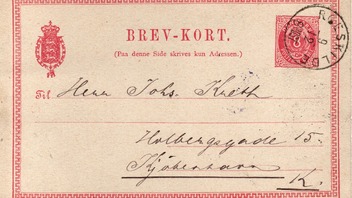 BREV-KORT.
(Paa denne Side skrives kun Adressen.)
Til Herr Johs.
Holbergsgade 15.
Kjøbenhavn
K.